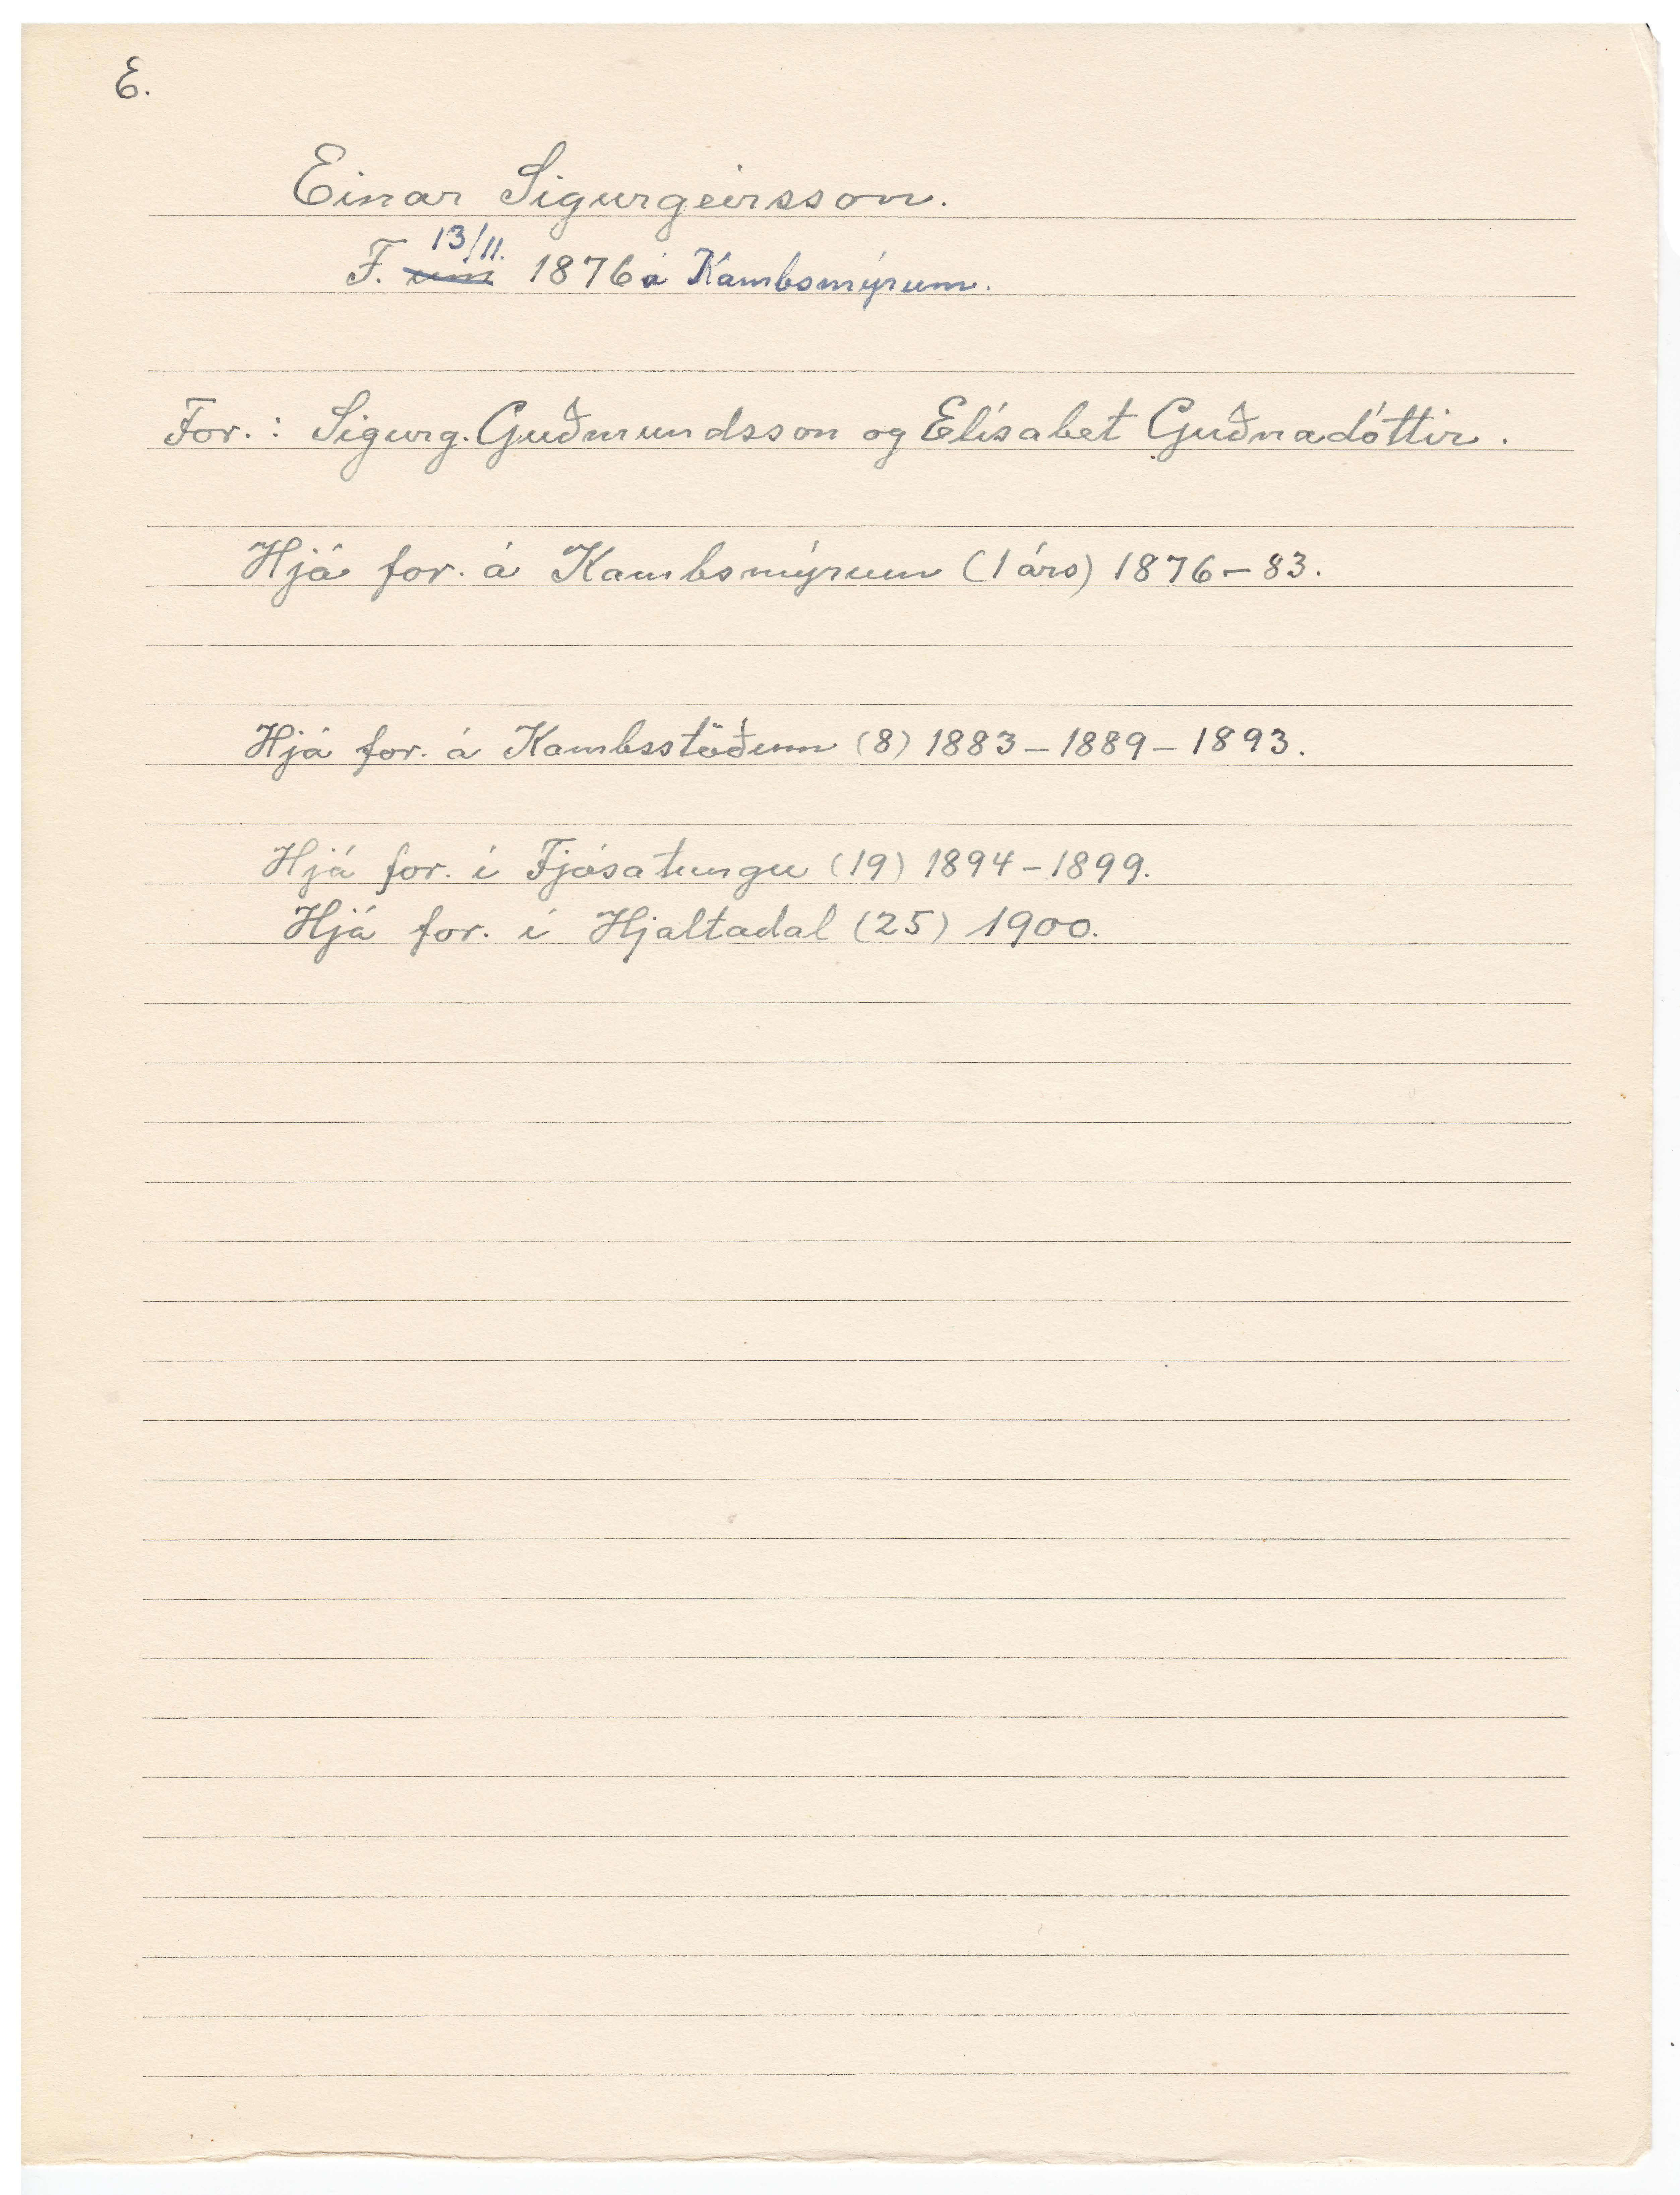 E.
Einar Sigurgeirsson.
F. um 13/11. 1876 á Kambsmýrum.
For.: Sigurg. Guðmundsson og Elísabet Guðnadóttir.
Hjá for. á Kambsmýrum (1 árs) 1876-83.
Hjá for. á Kambsstöðum (8) 1883-1889-1893.
Hjá for. í Fjósatungu (19) 1894-1899.
Hjá for. í Hjaltadal (25) 1900.